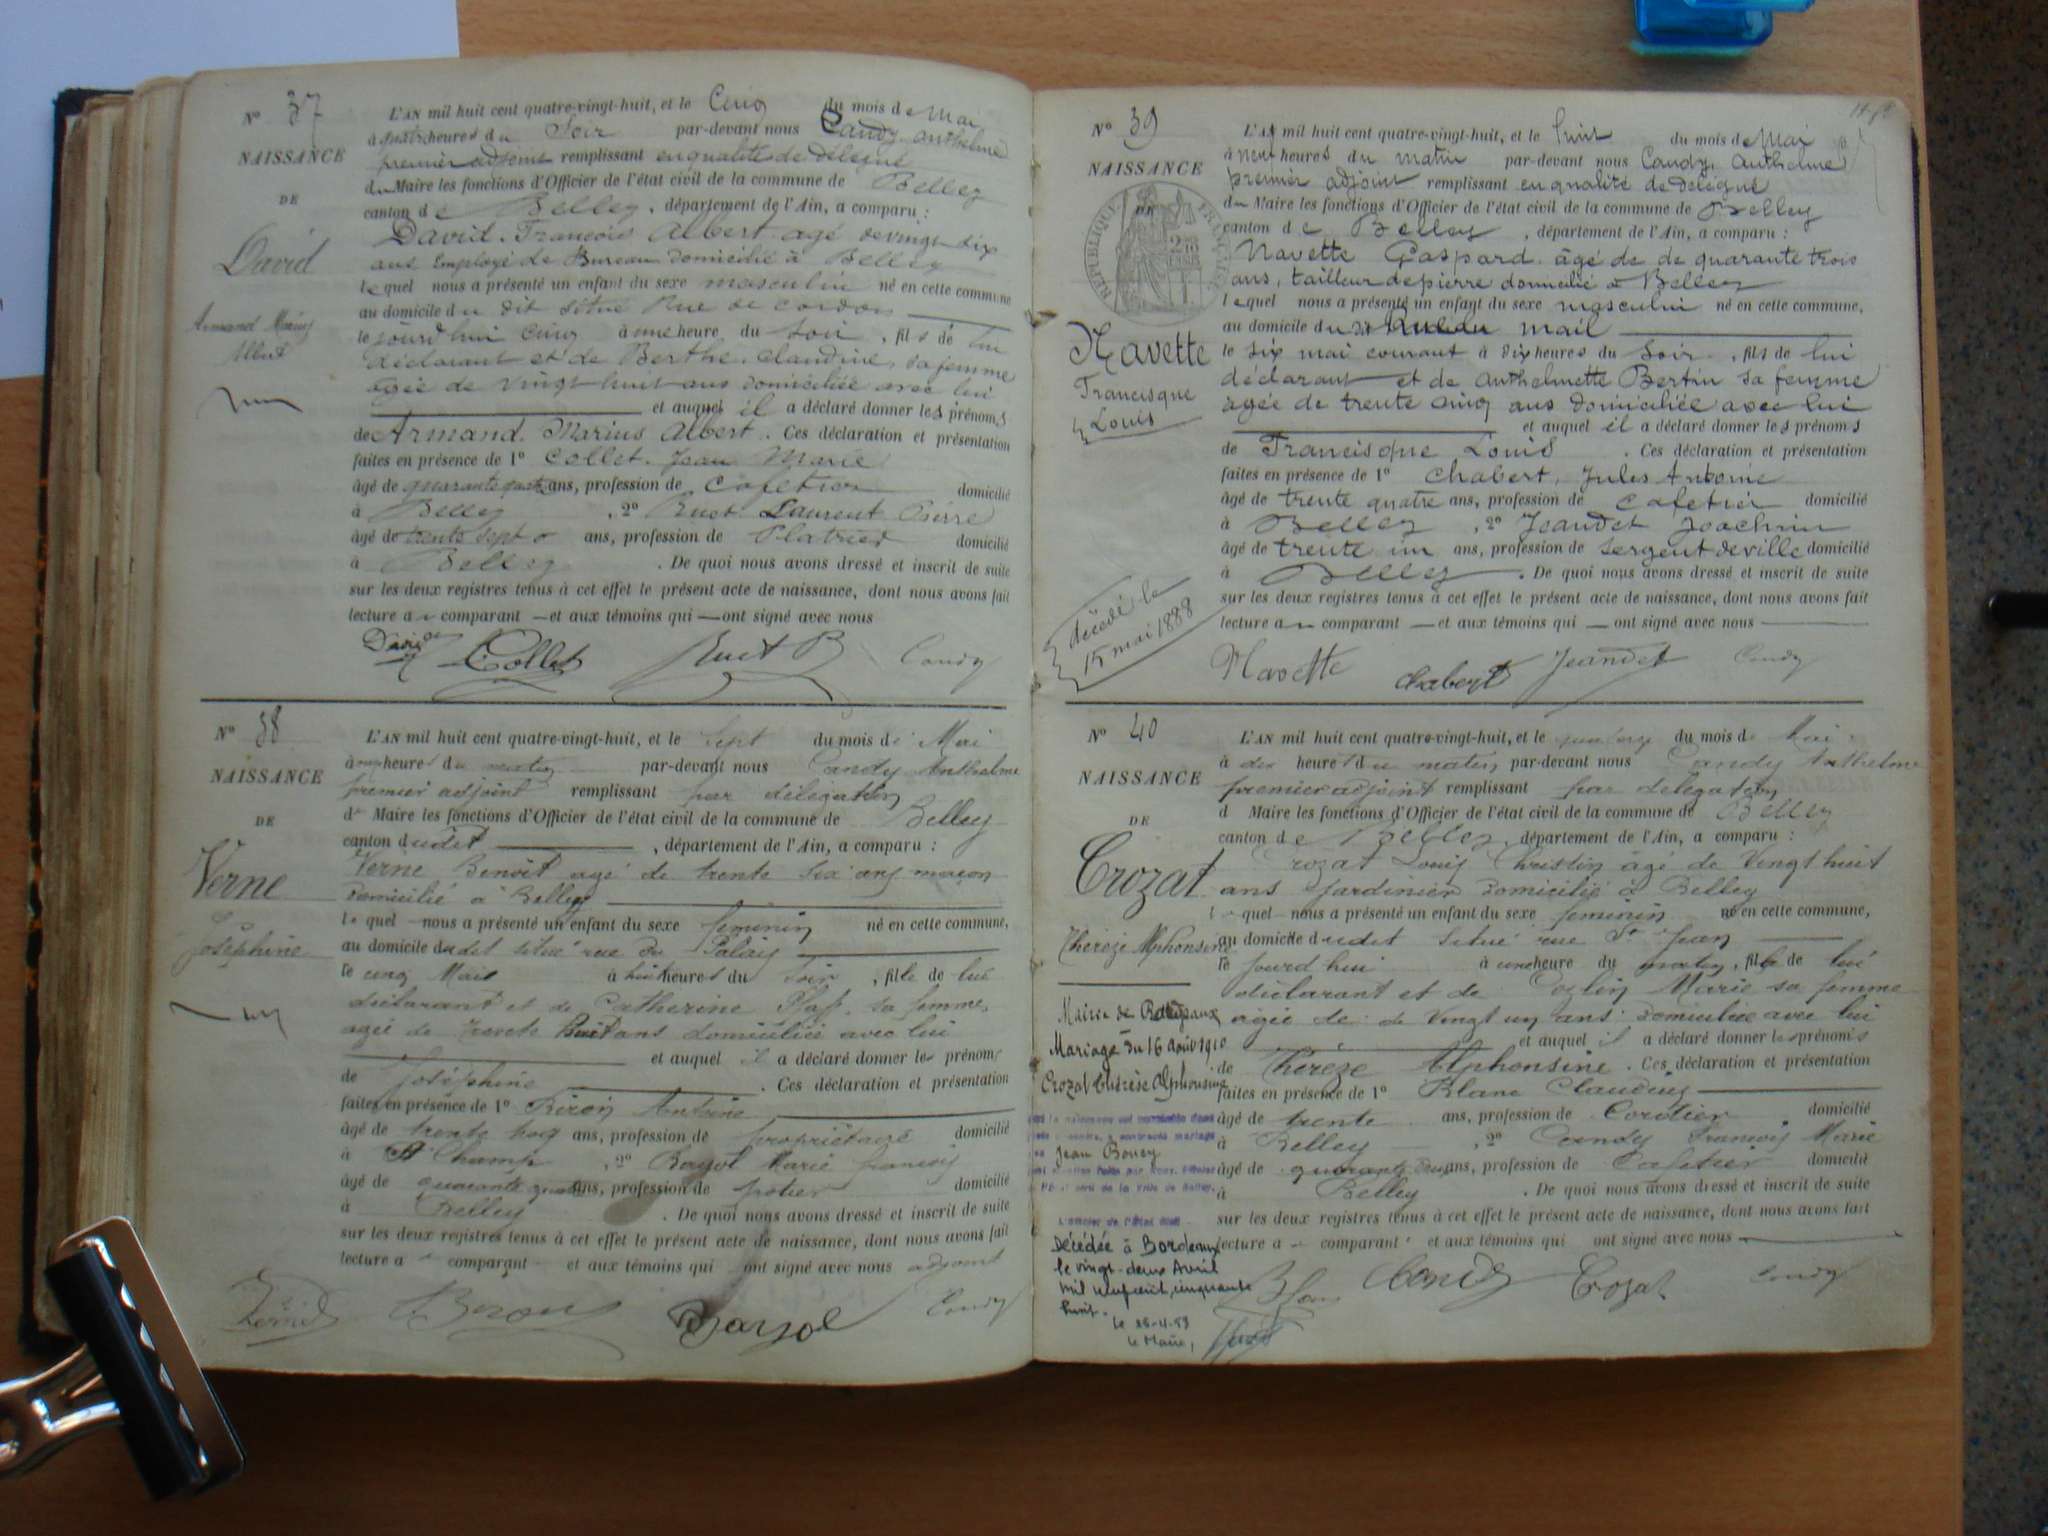 N° 37
NAISSANCE
DE
David
Armand Marius
Albert
L'AN mil huit cent quatre-vingt-huit, et le Cinq du mois de Mai
à quatre heures du Soir par-devant nous Candy Anthelme
premier adjoint remplissant en qualité de délégué
du Maire les fonctions d'Officier de l'état civil de la commune de Belley
canton de Belley, département de l'Ain, a comparu :
David François Albert agé de vingt six
ans Employé de Bureau domicilié à Belley
lequel nous a présenté un enfant du sexe masculin né en cette commune
au domicile du dit situé Rue de Cordon
le jourd'hui cinq à une heure du Soir, fils de lui
déclarant et de Berthe Claudine, sa femme
agée de vingt huit ans domiciliée avec lui
et auquel il a déclaré donner les prénoms
de Armand Marius Albert. Ces déclaration et présentation
faites en présence de 1° Collet Jean Marie
âgé de quarante quatre ans, profession de Cafetier domicilié
à Belley, 2° Ruet Laurent Pierre
âgé de trente sept ans, profession de Platrier domicilié
à Belley. De quoi nous avons dressé et inscrit de suite
sur les deux registres tenus à cet effet le présent acte de naissance, dont nous avons fait
lecture au comparant et aux témoins qui ont signé avec nous
David Collet Ruet Candy
N° 38
NAISSANCE
DE
Verne
Joséphine
L'AN mil huit cent quatre-vingt-huit, et le sept du mois de Mai
heures du matin par-devant nous Candy Anthelme
premier adjoint remplissant par délégation
du Maire les fonctions d'Officier de l'état civil de la commune de Belley
canton dudit, département de l'Ain, a comparu :
Verne Benoît agé de trente six ans maçon
domicilié à Belley
lequel nous a présenté un enfant du sexe féminin né en cette commune,
au domicile dudit situé rue du Palais
le cinq Mai à huit heures du Soir, fille de lui
déclarant et de Catherine sa femme,
agée de trente huit ans domiciliée avec lui
et auquel il a déclaré donner les prénoms
de Joséphine. Ces déclaration et présentation
faites en présence de 1° Antoine
âgé de trente ans, profession de propriétaire domicilié
à St Champ, 2° Marie François
âgé de quarante quatre ans, profession de potier domicilié
à Belley. De quoi nous avons dressé et inscrit de suite
sur les deux registres tenus à cet effet le présent acte de naissance, dont nous avons fait
lecture a comparant et aux témoins qui ont signé avec nous adjoint
Candy
N° 39
NAISSANCE
DE
RÉPUBLIQUE FRANÇAISE
Navette
Francisque
Louis
décédé le
15 mai 1888
L'AN mil huit cent quatre-vingt-huit, et le huit du mois de Mai
à neuf heures du matin par-devant nous Candy, Anthelme
premier adjoint remplissant en qualité de délégué
du Maire les fonctions d'Officier de l'état civil de la commune de Belley
canton de Belley, département de l'Ain, a comparu :
Navette Gaspard âgé de de quarante trois
ans, tailleur de pierre domicilié à Belley
lequel nous a présenté un enfant du sexe masculin né en cette commune,
au domicile du mail
le six mai courant à dix heures du Soir, fils de lui
déclarant et de Anthelmette Bertin sa femme
âgée de trente cinq ans domiciliée avec lui
et auquel il a déclaré donner les prénoms
de Francisque Louis. Ces déclaration et présentation
faites en présence de 1° Chabert, Jules Antoine
âgé de trente quatre ans, profession de Cafetier domicilié
à Belley, 2° Jeandet Joachim
âgé de trente un ans, profession de Sergent de ville domicilié
à Belley. De quoi nous avons dressé et inscrit de suite
sur les deux registres tenus à cet effet le présent acte de naissance, dont nous avons fait
lecture au comparant et aux témoins qui ont signé avec nous
Navette Chabert Jeandet Candy
N° 40
NAISSANCE
DE
Crozat
Thérèze Alphonsine
Mairie de Bordeaux
Mariage du 16 Août 1910
Crozat Thérèse Alphonsine
Jean Bouey
L'officier de l'État Civil
Décédée à Bordeaux
le vingt-deux Avril
mil neuf cent cinquante
huit.
Le Maire,
L'AN mil huit cent quatre-vingt-huit, et le quatorze du mois de Mai
à dix heures du matin, par-devant nous Candy Anthelme
premier adjoint remplissant par délégation
d Maire les fonctions d'Officier de l'état civil de la commune de Belley
canton de Belley, département de l'Ain, a comparu :
Crozat Louis Christin âgé de Vingt huit
ans Jardinier domicilié à Belley
lequel nous a présenté un enfant du sexe féminin né en cette commune,
au domicile dudit situé rue St Jean
le jourd'hui à une heure du matin, fille de lui
déclarant et de Marie sa femme
âgée de de Vingt un ans domiciliée avec lui
et auquel il a déclaré donner les prénoms
de Thérèze Alphonsine. Ces déclaration et présentation
faites en présence de 1° Blanc Claudius
âgé de trente ans, profession de domicilié
à Belley, 2° Candy François Marie
âgé de quarante deux ans, profession de Cafetier domicilié
à Belley. De quoi nous avons dressé et inscrit de suite
sur les deux registres tenus à cet effet le présent acte de naissance, dont nous avons fait
lecture a comparant et aux témoins qui ont signé avec nous
Candy Crozat Candy